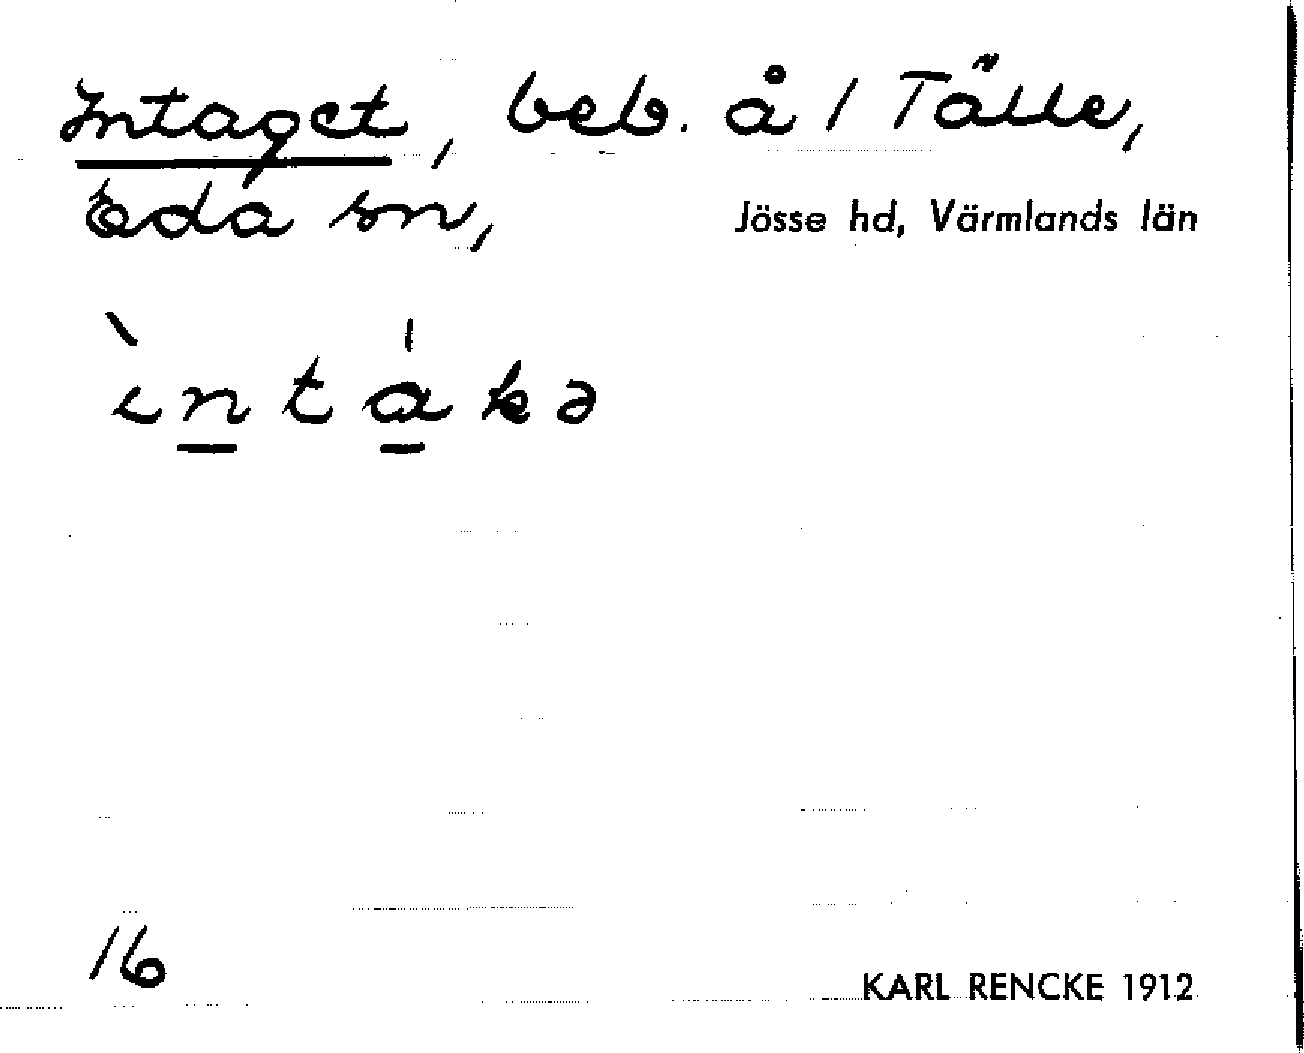 Intaget, beb. å 1 Tälle,
Eda sn, Jösse hd, Värmlands län
ìntákə
16 KARL RENCKE 1912